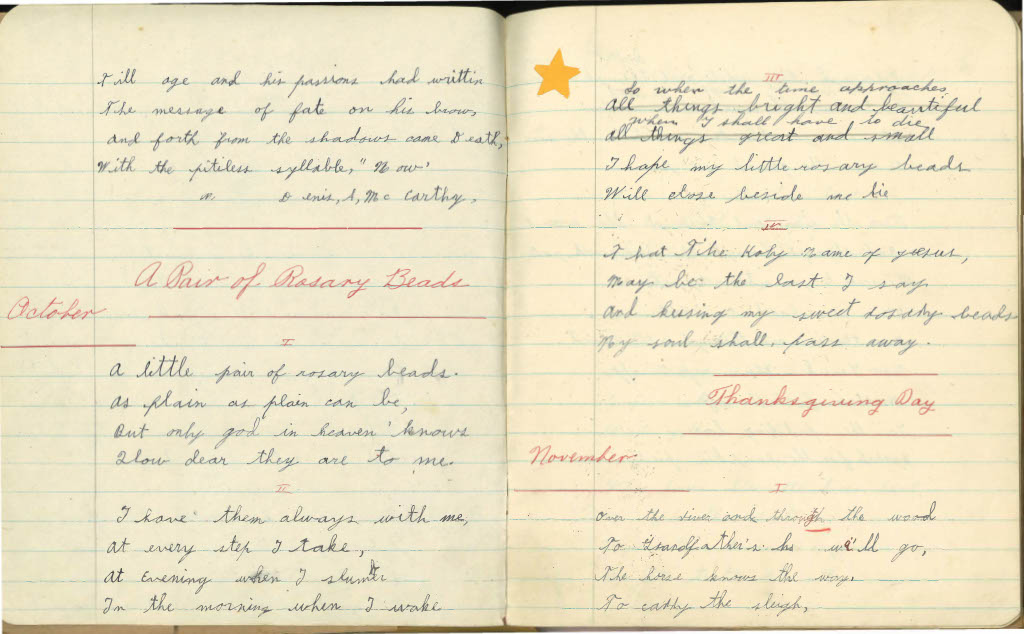 Till age and his passions had writtin
The message of fate on his brow,
And forth from the shadows came Death,
With the pitiless syllable, "Now'
Denis, A, Mc Carthy.
A Pair of Rosary Beads
October
I
A little pair of rosary beads.
As plain as plain can be,
But only god in heaven' knows
How dear they are to me.
II
I have them always with me,
At every step I take,
At Evening when I slumber
In the morning when I wake
III
So when the time approaches
All things bright and beautiful
when I shall have to die
All things great and small
I hope my little rosary beads
Will close beside me lie
IV
That The Holy Name of Jesus,
May be the last I say
And kissing my sweet rosary beads
My soul shall, pass away.
Thanksgiving Day
November
I
Over the river and through the wood
To Grandfather's ho we'll go,
The horse knows the way,
To carry the sleigh,